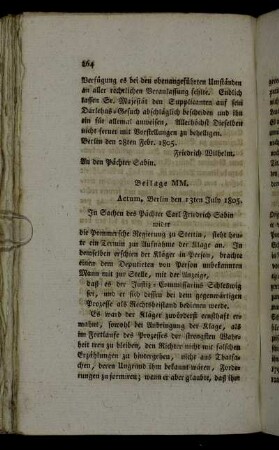 864
Verfügung es bei den obenangeführten Umständen
an aller rechtlichen Veranlassung fehlte. Endlich
lassen Sr. Majestät den Supplicanten auf sein
Darlehns-Gesuch abschläglich bescheiden und ihn
ein für allemal anweisen, Allerhöchst Dieselben
nicht ferner mit Vorstellungen zu behelligen.
Berlin den 28sten Febr. 1805.
Friedrich Wilhelm.
An den Pächter Sabin.
Beilage MM.
Actum, Berlin den 13ten July 1805.
In Sachen des Pächter Carl Friedrich Sabin
wider
die Pommersche Regierung zu Stettin, steht heu-
te ein Termin zur Aufnahme der Klage an. In
demselben erschien der Kläger in Person, brachte
einen dem Deputirten von Person unbekannten
Mann mit zur Stelle, mit der Anzeige,
daß es der Justiz-Commissarius Schledwig
sei, und er sich dessen in dem gegenwärtigen
Prozesse als Rechtsbeistand bedienen werde.
Es ward der Kläger zuvörderst ernsthaft er-
mahnt, sowohl bei Anbringung der Klage, als
im Fortlaufe des Prozesses der strengsten Wahr-
heit treu zu bleiben, den Richter nicht mit falschen
Erzählungen zu hintergehen, nicht aus Thatsa-
chen, deren Ungrund ihm bekannt wären, Forde-
rungen zu formiren; wenn er aber glaubt, daß ihm